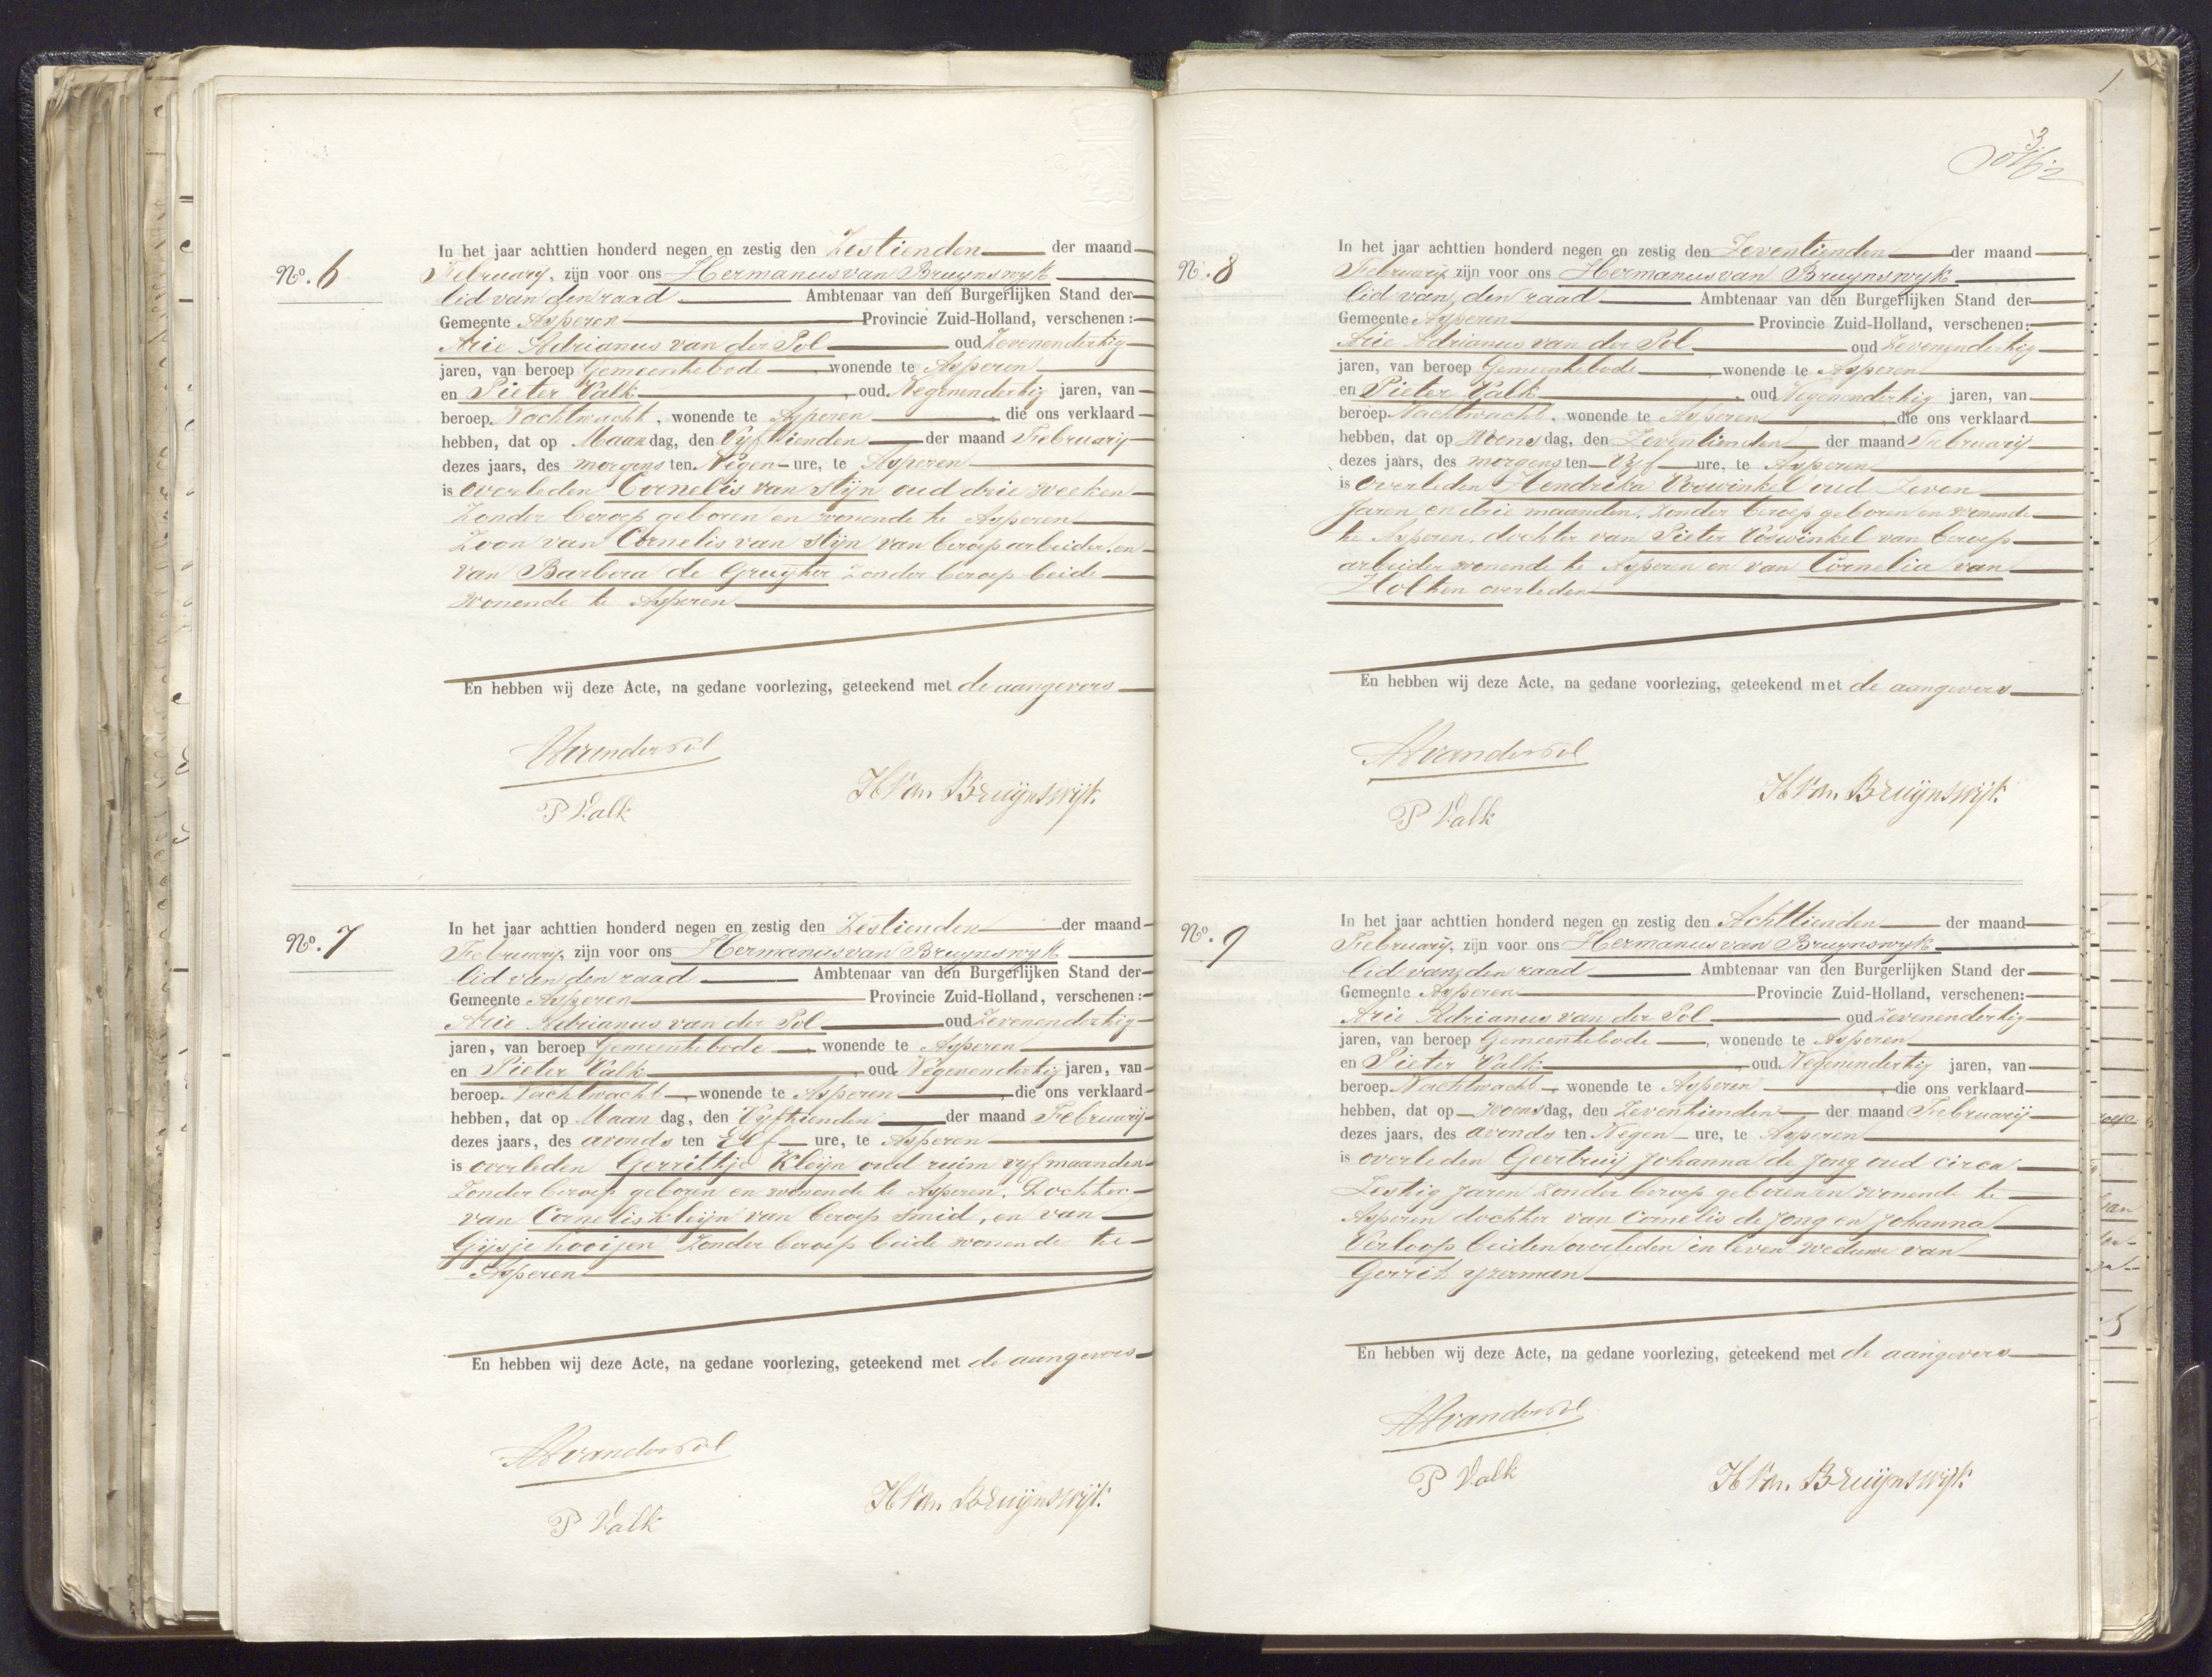 No. 6
In het jaar achttien honderd negen en zestig den Zestienden der maand
February, zijn voor ons Hermanus van Bruynswyk
lid van den raad Ambtenaar van den Burgerlijken Stand der
Gemeente Asperen Provincie Zuid-Holland, verschenen:
Arie Adrianus van der Pol oud Zevenendertig
jaren, van beroep Gemeentebode, wonende te Asperen
en Pieter Valk, oud Negenendertig jaren, van
beroep Nachtwacht, wonende te Asperen, die ons verklaard
hebben, dat op Maandag, den Vyftienden der maand February
dezes jaars, des morgens ten Negen ure, te Asperen
is overleden Cornelis van Stijn oud drie weeken
Zonder beroep geboren en wonende te Asperen
Zoon van Cornelis van Stijn van beroep arbeider en
van Barbera de Gruijter Zonder beroep beide
wonende te Asperen
En hebben wij deze Acte, na gedane voorlezing, geteekend met de aangevers
AAvanderPol
P Valk
H Van Bruijnswijk.
No. 7
In het jaar achttien honderd negen en zestig den Zestienden der maand
February, zijn voor ons Hermanus van Bruynswyk
lid van den raad Ambtenaar van den Burgerlijken Stand der
Gemeente Asperen Provincie Zuid-Holland, verschenen:
Arie Adrianus van der Pol oud Zevenendertig
jaren, van beroep Gemeentebode, wonende te Asperen
en Pieter Valk, oud Negenendertig jaren, van
beroep Nachtwacht, wonende te Asperen, die ons verklaard
hebben, dat op Maandag, den Vyftienden der maand February
dezes jaars, des avonds ten Elf ure, te Asperen
is overleden Gerrittje Kleijn oud ruim vyf maanden
Zonder beroep geboren en wonende te Asperen. Dochter
van Cornelis Kleijn van beroep smid, en van
Gijsje Kooijen Zonder beroep beide wonende te
Asperen
En hebben wij deze Acte, na gedane voorlezing, geteekend met de aangevers
AAvanderPol
P Valk
H Van Bruijnswijk.
3
No. 8
In het jaar achttien honderd negen en zestig den Zeventienden der maand
February, zijn voor ons Hermanus van Bruynswyk
lid van den raad Ambtenaar van den Burgerlijken Stand der
Gemeente Asperen Provincie Zuid-Holland, verschenen:
Arie Adrianus van der Pol oud Zevenendertig
jaren, van beroep Gemeentebode, wonende te Asperen
en Pieter Valk, oud Negenendertig jaren, van
beroep Nachtwacht, wonende te Asperen, die ons verklaard
hebben, dat op Woensdag, den Zeventienden der maand February
dezes jaars, des morgens ten Vyf ure, te Asperen
is overleden Hendrika Voswinkel oud Zeven
Jaren en drie maanden, Zonder beroep geboren en wonende
te Asperen, dochter van Pieter Voswinkel van beroep
arbeider wonende te Asperen en van Cornelia van
Holten overleden
En hebben wij deze Acte, na gedane voorlezing, geteekend met de aangevers
AAvanderPol
P Valk
H Van Bruijnswijk.
No. 9
In het jaar achttien honderd negen en zestig den Achttienden der maand
February, zijn voor ons Hermanus van Bruynswyk
lid van den raad Ambtenaar van den Burgerlijken Stand der
Gemeente Asperen Provincie Zuid-Holland, verschenen:
Arie Adrianus van der Pol oud Zevenendertig
jaren, van beroep Gemeentebode, wonende te Asperen
en Pieter Valk, oud Negenendertig jaren, van
beroep Nachtwacht, wonende te Asperen, die ons verklaard
hebben, dat op woensdag, den Zeventienden der maand February
dezes jaars, des avonds ten Negen ure, te Asperen
is overleden Geertruij Johanna de Jong oud circa
Zestig Jaren Zonder beroep geboren en wonende te
Asperen dochter van Cornelis de Jong en Johanna
Verloop beiden overleden in leven weduwe van
Gerrit yzerman
En hebben wij deze Acte, na gedane voorlezing, geteekend met de aangevers
AAvanderPol
P Valk
H Van Bruijnswijk.